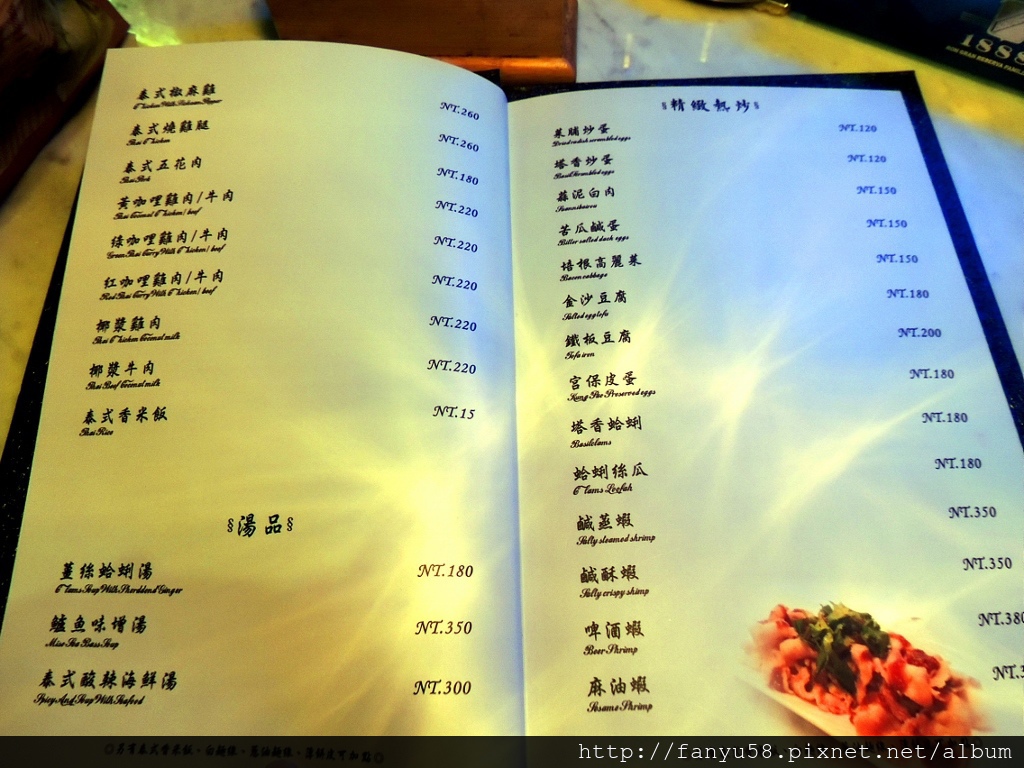 泰式椒麻雞 NT.260
Chicken With Sichuan Pepper
泰式燒雞腿 NT.260
Thai Chicken
泰式五花肉 NT.180
Thai Pork
黃咖哩雞肉/牛肉 NT.220
Thai Coconut Chicken/beef
綠咖哩雞肉/牛肉 NT.220
Green Thai Curry With Chicken/beef
紅咖哩雞肉/牛肉 NT.220
Red Thai Curry With Chicken/beef
椰漿雞肉 NT.220
Thai Chicken Coconut milk
椰漿牛肉 NT.220
Thai Beef Coconut milk
泰式香米飯 NT.15
Thai Rice
§湯品§
薑絲蛤蜊湯 NT.180
Clams Soup With Sherddend Ginger
鱸魚味增湯 NT.350
Miso Sea Bass Soup
泰式酸辣海鮮湯 NT.300
Spicy And Soup With Seafood
§精緻熱炒§
菜脯炒蛋 NT.120
Dried radish scrambled eggs
塔香炒蛋 NT.120
Basil Scrambled eggs
蒜泥白肉 NT.150
苦瓜鹹蛋 NT.150
Bitter salted duck eggs
培根高麗菜 NT.150
Bacon cabbage
金沙豆腐 NT.180
Salted egg tofu
鐵板豆腐 NT.200
Tofu iron
宮保皮蛋 NT.180
Kung Pao Preserved eggs
塔香蛤蜊 NT.180
Basil clams
蛤蜊絲瓜 NT.180
Clams Loofah
鹹蒸蝦 NT.350
Salty steamed shrimp
鹹酥蝦 NT.350
Salty crispy shimp
啤酒蝦 NT.380
Beer Shrimp
麻油蝦 NT.3
Sesame Shrimp
1888
http://fanyu58.pixnet.net/album